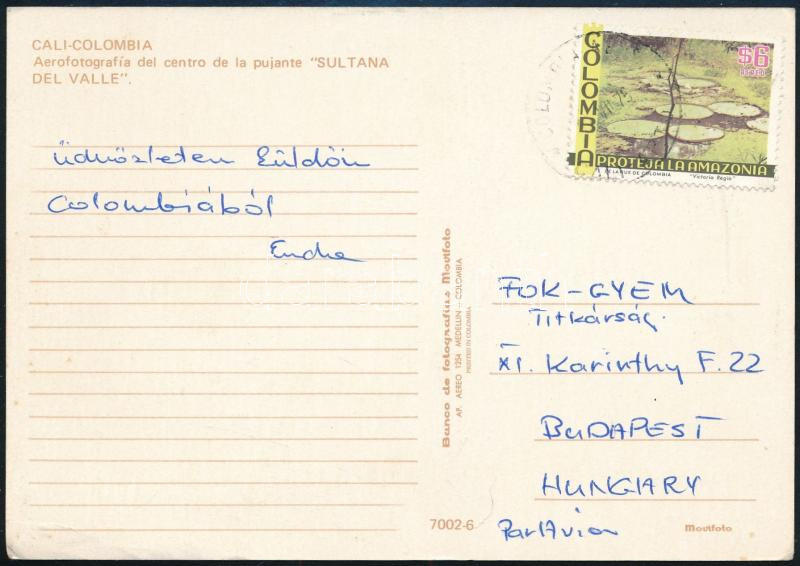 CALI-COLOMBIA
Aerofotografía del centro de la pujante "SULTANA
DEL VALLE".
Üdvözletem Küldöm
Colombiából
Endre
Banco de fotografias Movifoto
AP. AEREO 1254 MEDELLIN - COLOMBIA
PRINTED IN COLOMBIA
7002-6
COLOMBIA
$6
AEREO
PROTEJA LA AMAZONIA
DE LA RUE DE COLOMBIA "Victoria Regia"
FOK-GYEM
Titkárság
XI. Karinthy F. 22
BUDAPEST
HUNGARY
Par Avion
Movifoto